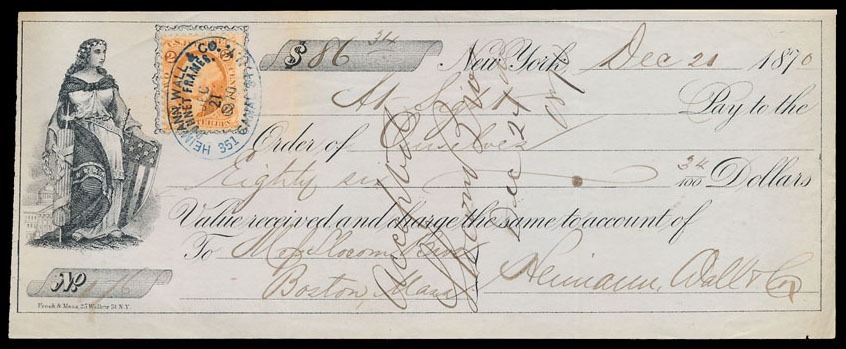 $ 86 34 New York, Dec 21 1870
At Sight Pay to the
Order of Ourselves
Eighty six 34/100 Dollars
Value received and charge the same to account of
To Slocom
Boston, Mass Heimann, Wall & Co
No. 176
HEIMANN, WALL & CO.
351 CANAL
DEC
21
1870
U.S.
Accepted
Dec 24
Frank & Mann, 25 Walker St N.Y.